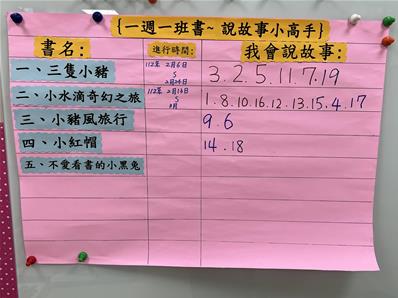 {一週一班書~ 說故事小高手}
書名: 進行時間: 我會說故事:
一、三隻小豬 112年 2月6日 3.2.5.11.7.19
S
二、小水滴奇幻之旅 112年 2月13日 1.8.10.16.12.13.15.4.17
S
三、小豬風旅行 9.6
四、小紅帽 14.18
五、不愛看書的小黑兔